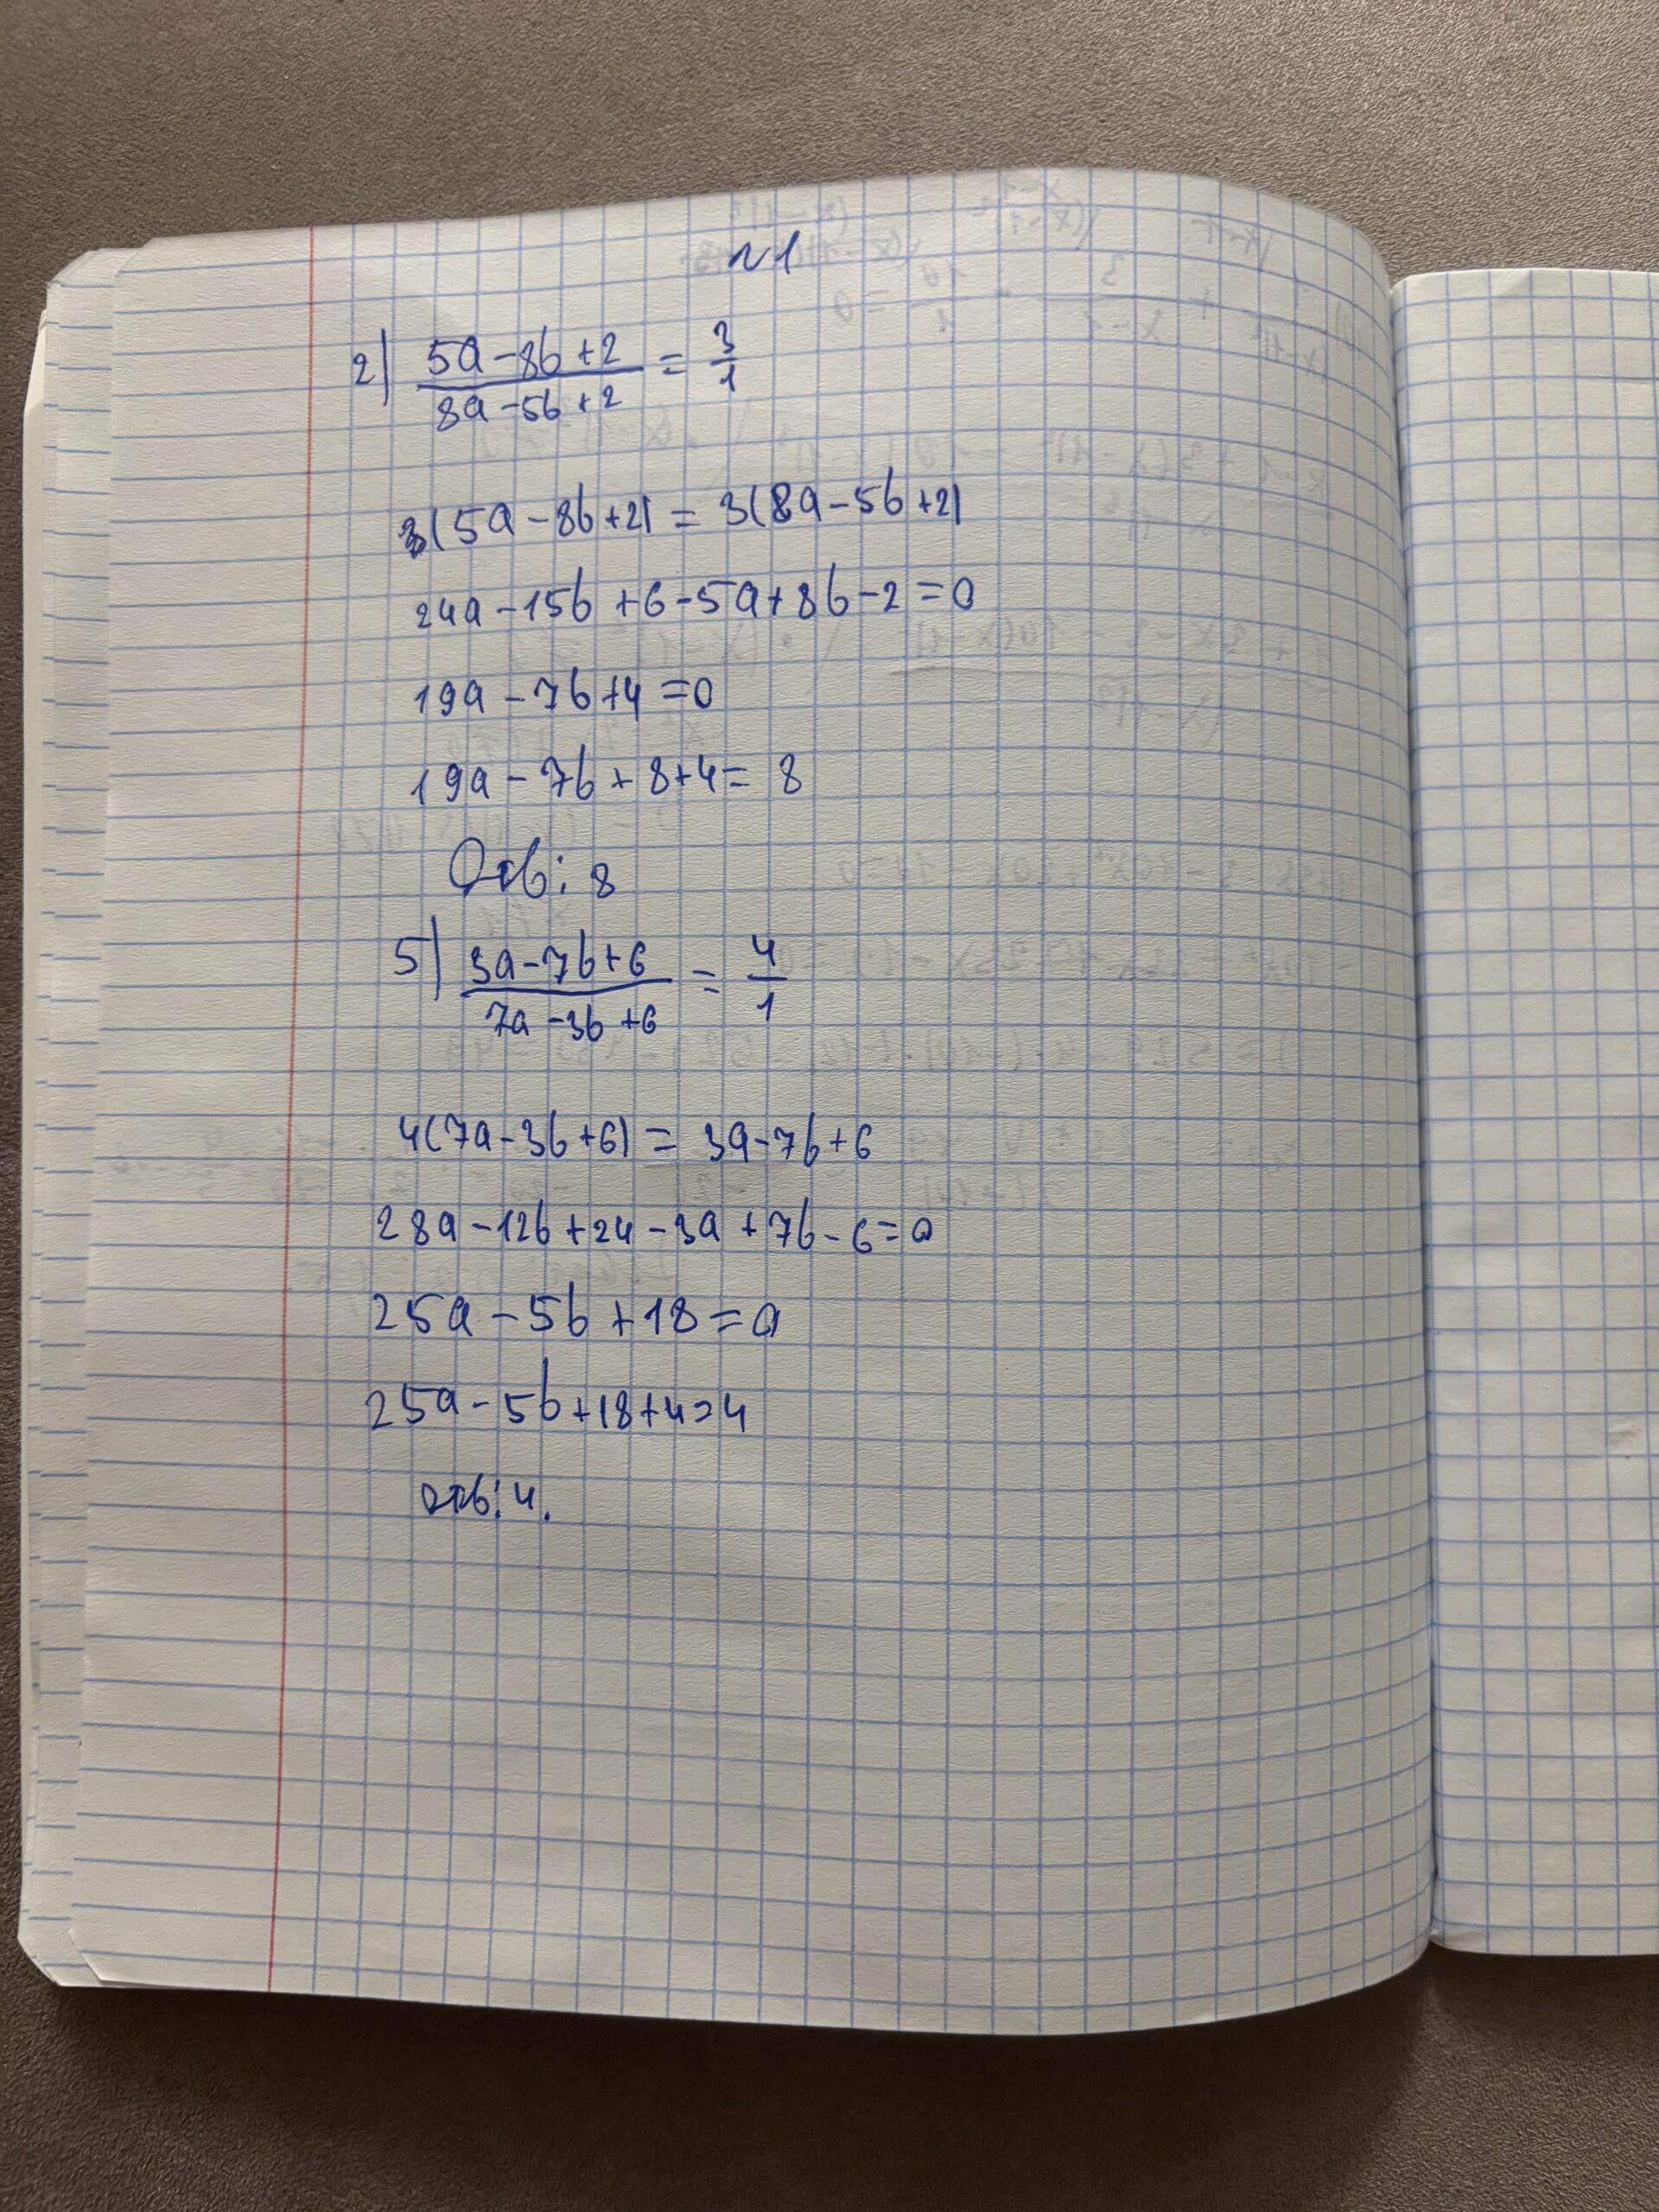 №1
2) (5a-8b+2)/(8a-5b+2) = 3/1
3(5a-8b+2) = 3(8a-5b+2)
24a-15b+6-5a+8b-2=0
19a-7b+4=0
19a-7b+8+4=8
Отв: 8
5) (3a-7b+6)/(7a-3b+6) = 4/1
4(7a-3b+6) = 3a-7b+6
28a-12b+24-3a+7b-6=0
25a-5b+18=0
25a-5b+18+4=4
отв: 4.